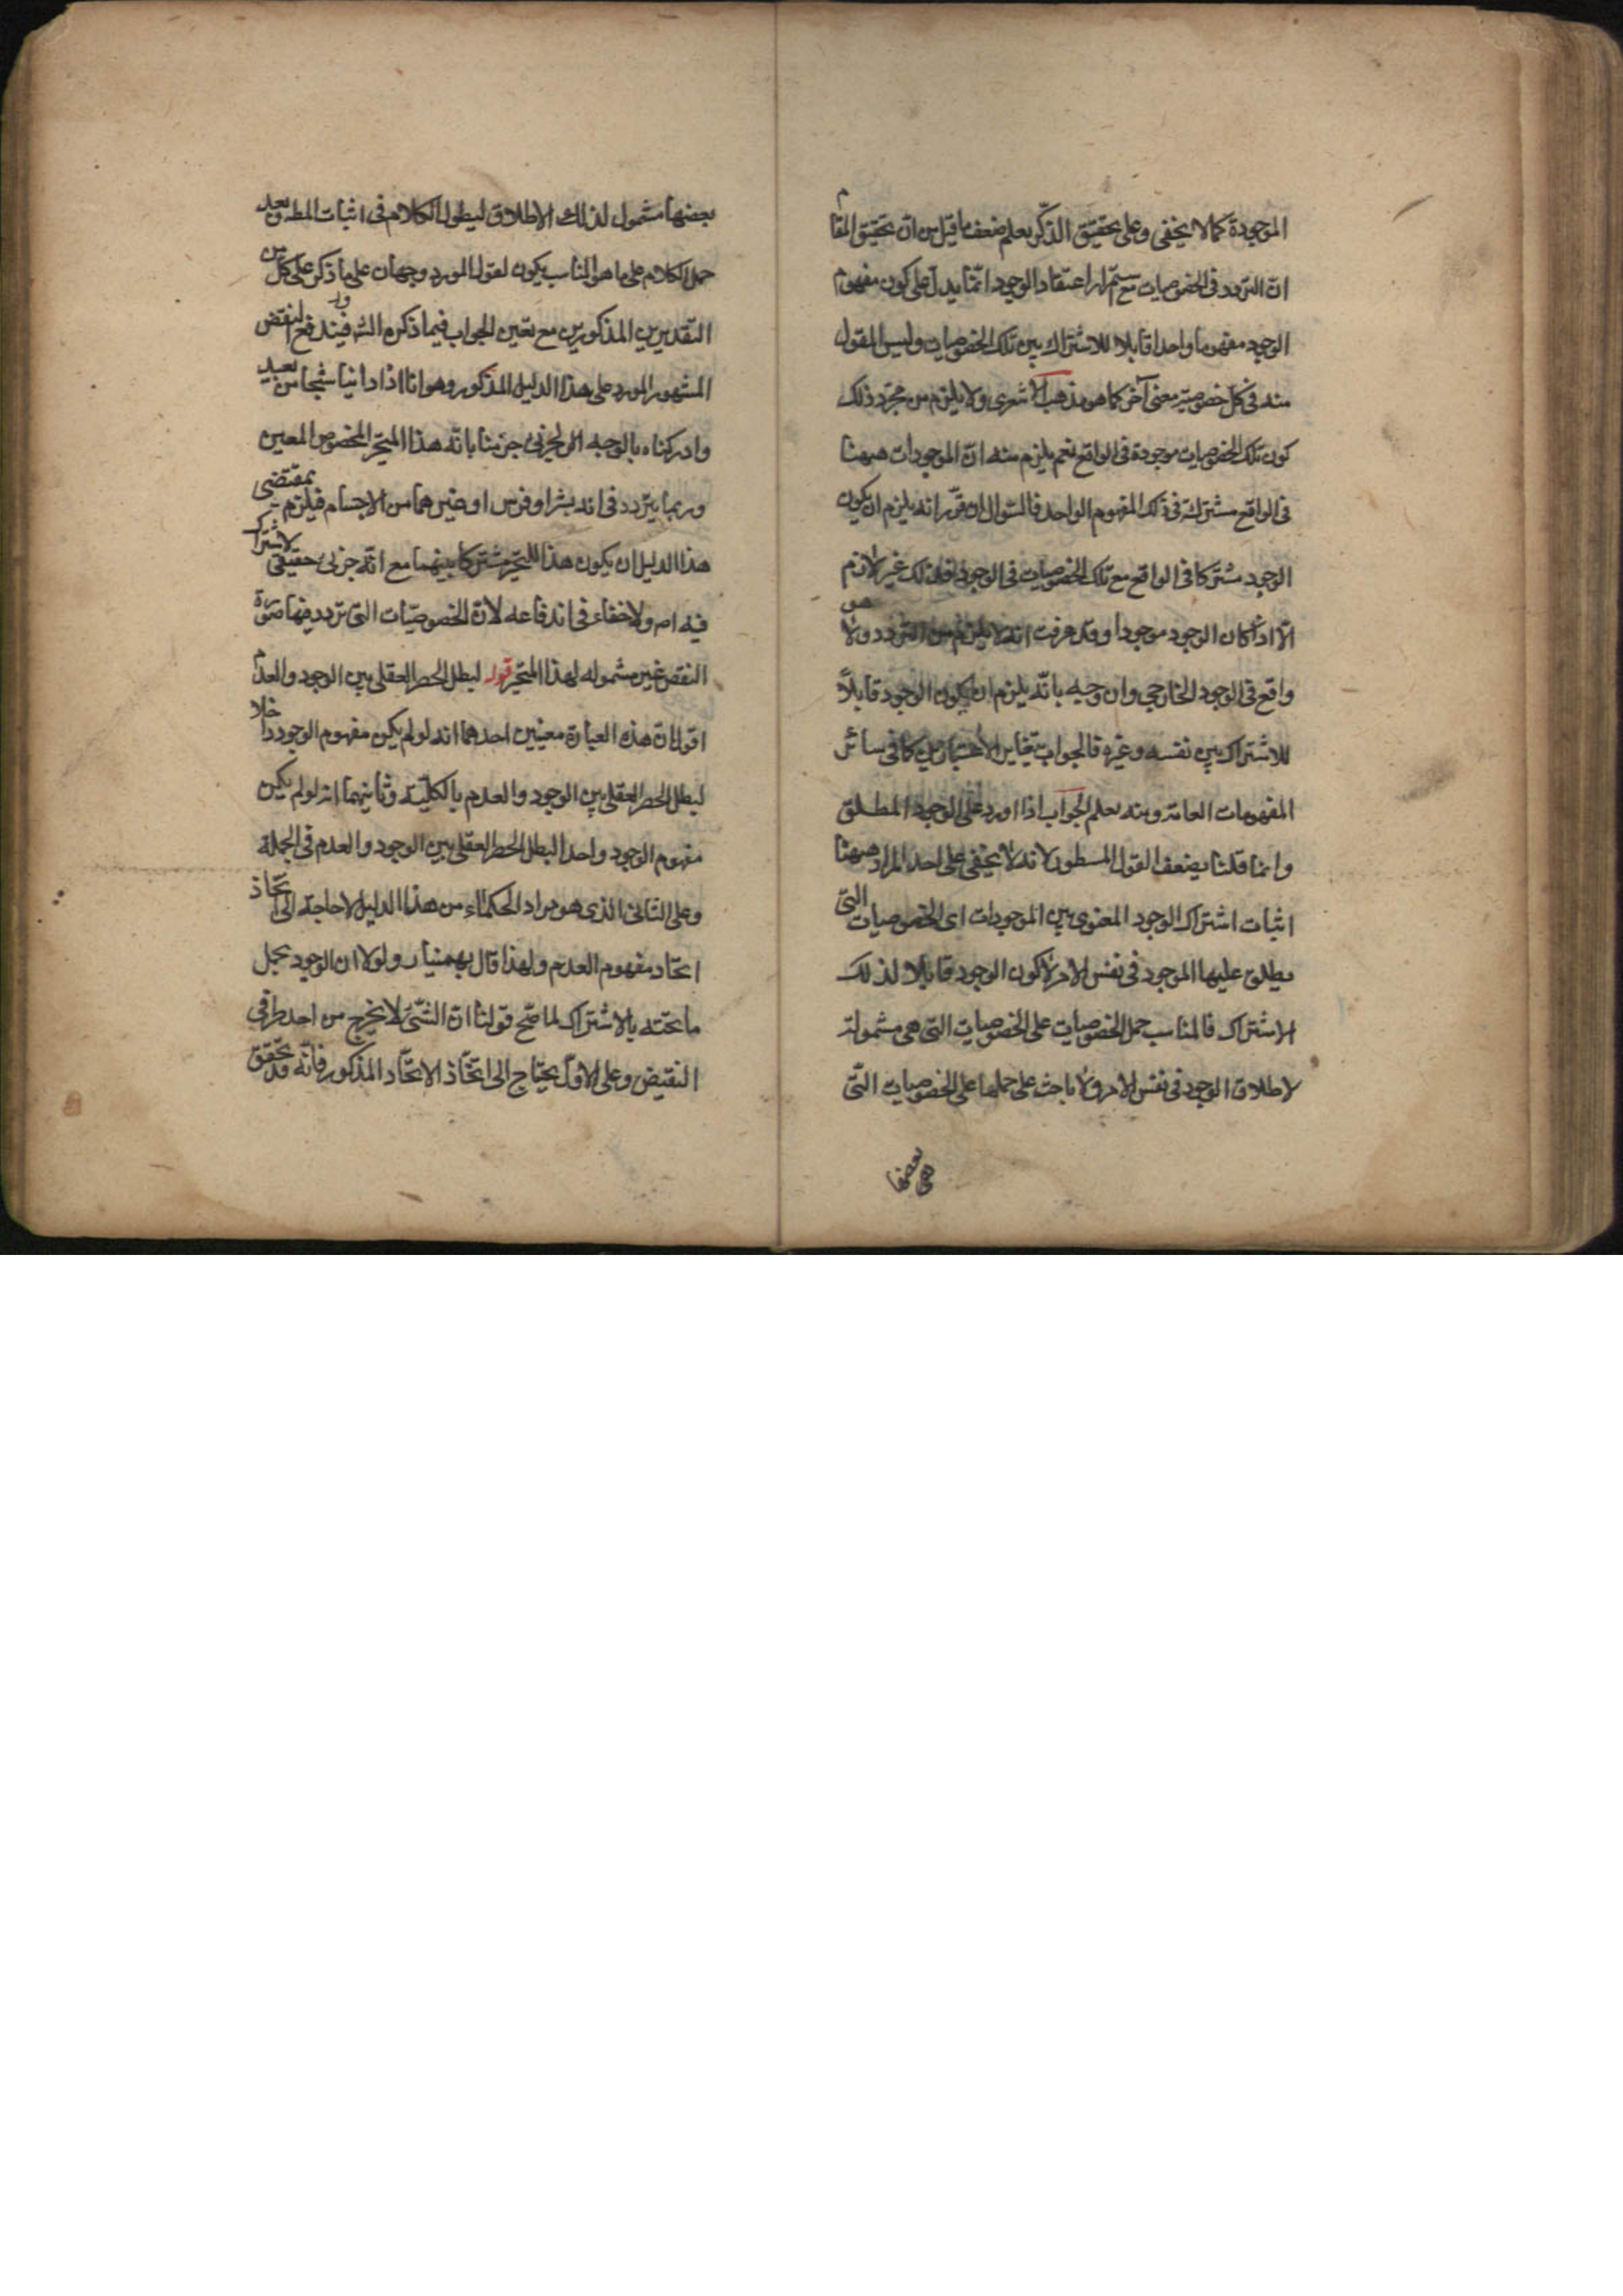 الموجودة كما لا يخفى وعلى تحقيق الذكر يعلم ضعف ما قيل من ان تحقيق المقام
ان التردد في الخصوصيات مع ستمرار اعتقاد الوجود انما يدل على كون مفهوم
الوجود مفهوما واحدا قابلا للاشتراك بين تلك الخصوصيات وليس المقول
منه في كل خصوصية معنى آخر كما هو مذهب الاشعرى ولا يلزم من مجرد ذلك
كون تلك الخصوصيات موجودة في الواقع نعم يلزم منه ان الموجودات ههنا
في الواقع مشتركة في ذلك المفهوم الواحد فالسؤال ان قرر انه يلزم ان يكون
الوجود مشتركا في الواقع مع تلك الخصوصيات في الوجود فذلك غير لازم
الا اذا كان الوجود موجودا وقد عرفت انه لا يلزم من التردد ولا هو
واقع في الوجود الخارجي وان وجه بانه يلزم ان يكون الوجود قابلا
للاشتراك بين نفسه وغيره فالجواب بتغاير الاعتبارين كما في سائر
المفهومات العامة ومنه يعلم الجواب اذا اورد على الوجود المطلق
وانما قلنا بضعف القول المسطور لانه لا يخفى على احد المراد ههنا
اثبات اشتراك الوجود المعنوي بين الموجودات اى الخصوصيات التى
يطلق عليها الموجود في نفس الامر لا كون الوجود قابلا لذلك
الاشتراك فالمناسب حمل الخصوصيات على الخصوصيات التى هى مشمولة
لاطلاق الوجود في نفس الامر ولا باحث على حملها على الخصوصيات التى
هى بعضها
بعضها مشمول لذلك الاطلاق ليطول الكلام في اثبات المط وبعد
حمل الكلام على ما هو المناسب يكون لقول المورد وجهان على ما ذكر على كل من
التقديرين المذكورين مع تعين الجواب فيما ذكره الش فيندفع النقض
المشهور المورد على هذا الدليل المذكور وهو انا اذا راينا شبحا من بعيد
وادركناه بالوجه الجزئى جزمنا بانه هذا المتحيز المخصوص المعين
وربما يتردد في انه بشر او فرس او غيرهما من الاجسام فيلزم بمقتضى
هذا الدليل ان يكون هذا المتحيز مشتركا بينهما مع انه جزئى حقيقى لا اشتراك
فيه اص ولا خفاء في اندفاعه لان الخصوصيات التى تردد فيها صورة
النقض غير مشموله لهذا المتحيز قوله لبطل الحصر العقلى بين الوجود والعدم
اقول ان هذه العبارة معنيين احدهما انه لو لم يكن مفهوم الوجود واحدا
لبطل الحصر العقلى بين الوجود والعدم بالكلية وثانيهما انه لو لم يكن
مفهوم الوجود واحدا لبطل الحصر العقلى بين الوجود والعدم في الجملة
وعلى الثانى الذى هو مراد الحكماء من هذا الدليل لا حاجة الى اتخاذ
اتحاد مفهوم العدم ولهذا قال بهمنيار ولولا ان الوجود يحمل
ما تحته بالاشتراك لما صح قولنا ان الشئ لا يخرج من احد طرفى
النقيض وعلى الاول يحتاج الى اتخاذ الاتحاد المذكور فانه قد تحقق